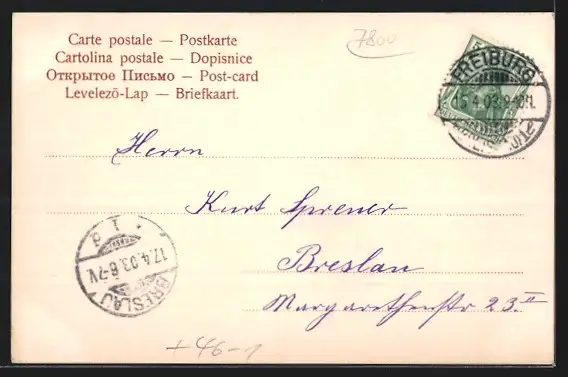 Carte postale — Postkarte
Cartolina postale — Dopisnice
Открытое Письмо — Post-card
Levelező-Lap — Briefkaart.
7800
FREIBURG
15.4.03.9-10N.
Herrn
Kurt Sprener
Breslau
Margarethenstr 23.II
BRESLAU
17.4.03.6-7V
+46-1